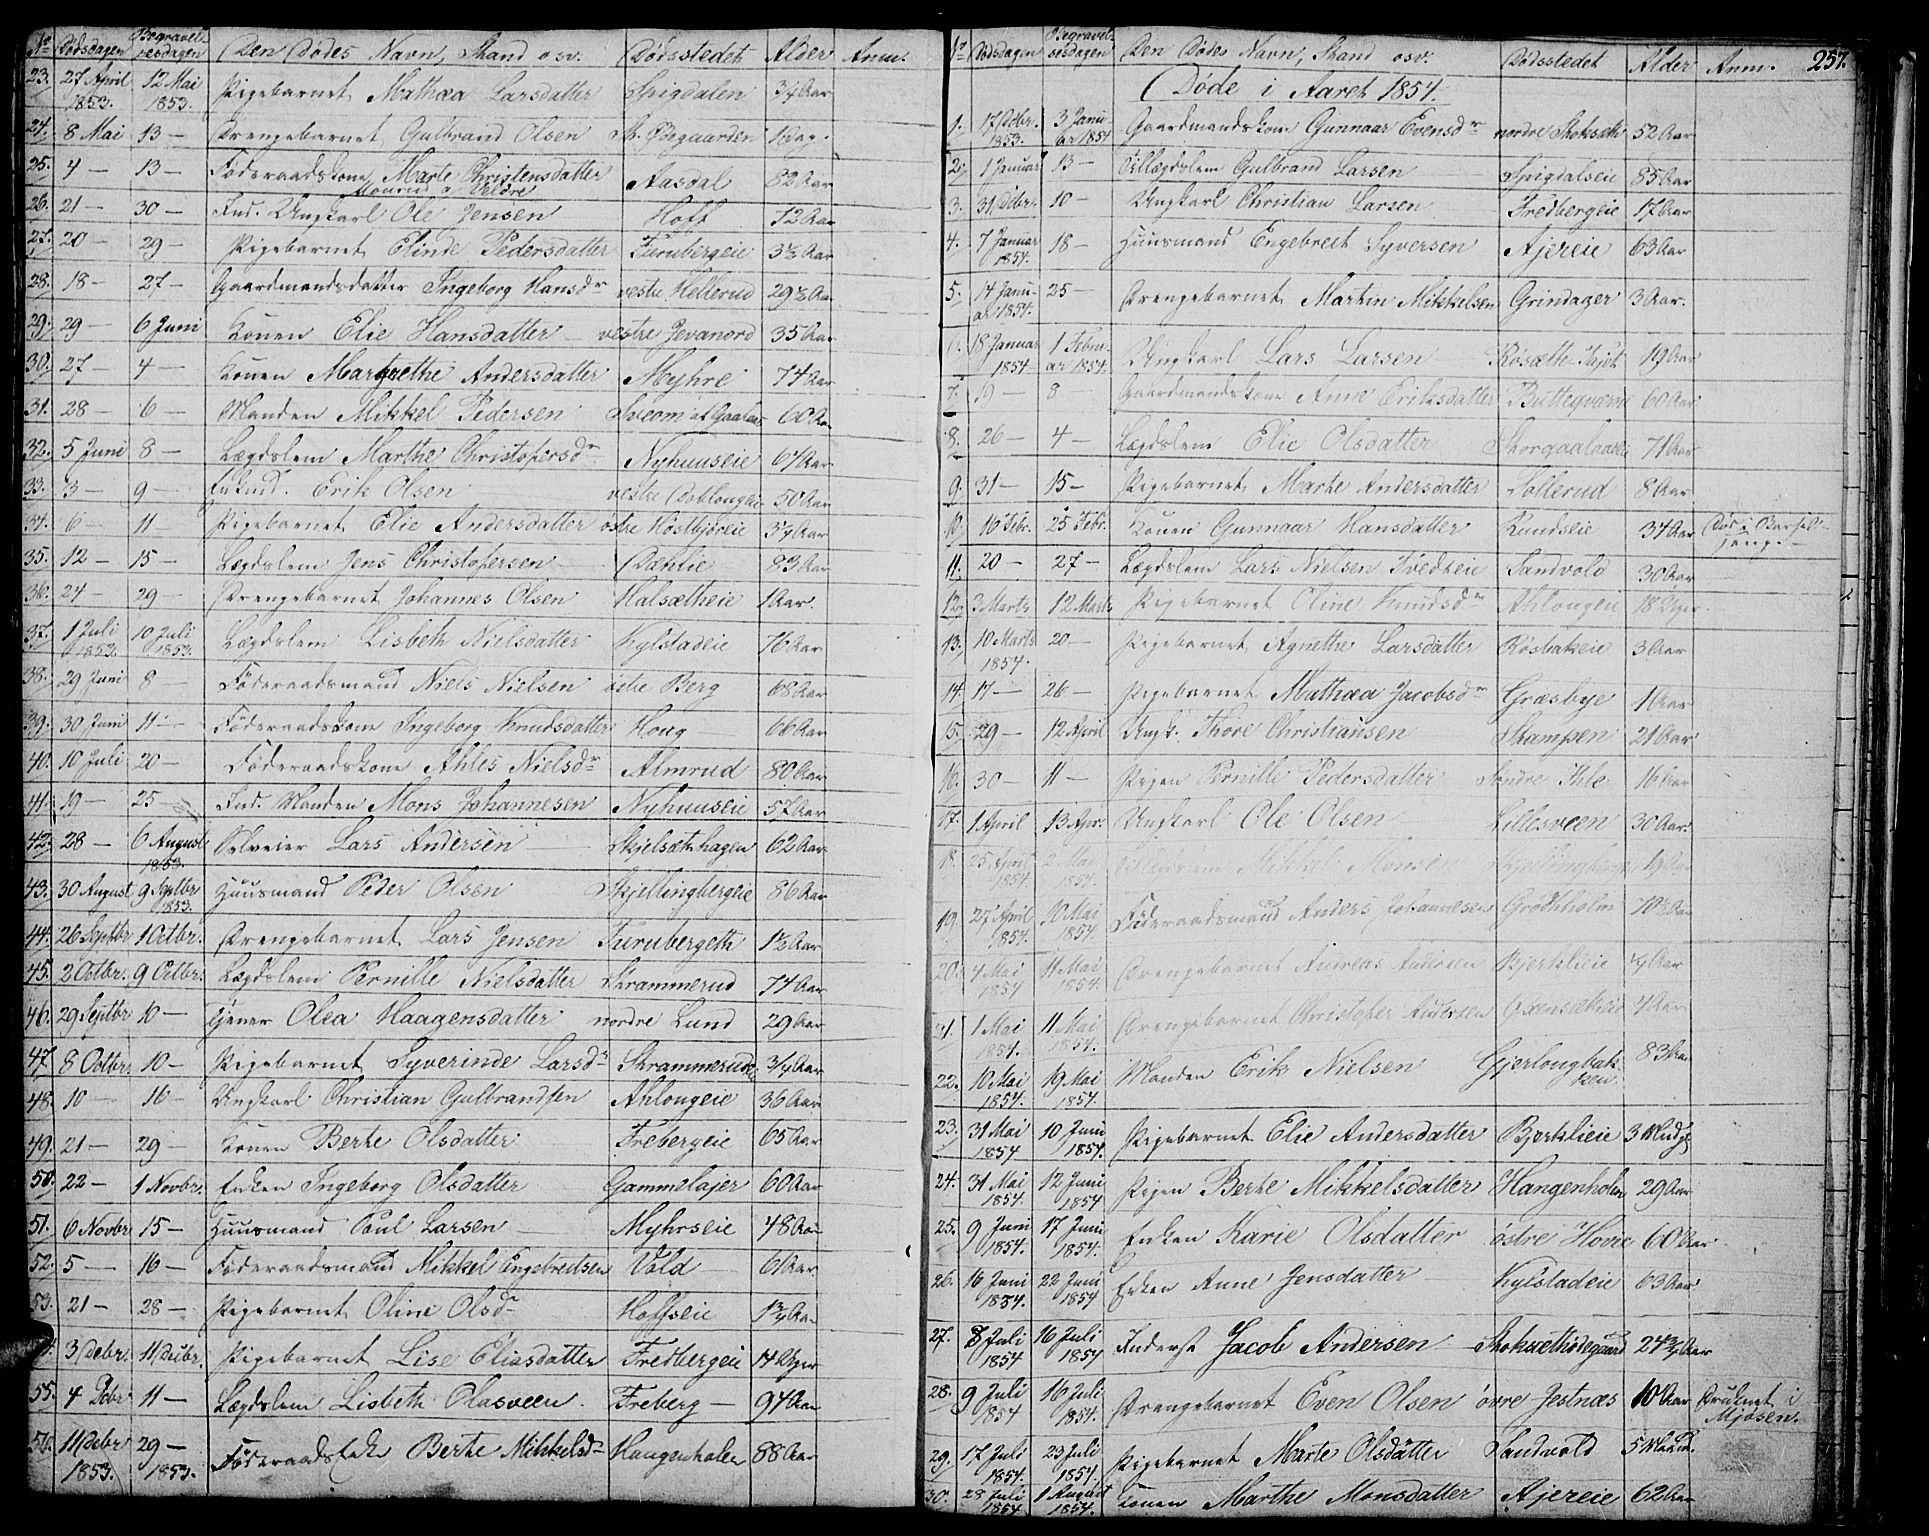 No Dødsdagen Begravelsesdagen Den Dødes Navn, Stand osv. Dødsstedet Alder Anm.
23. 27 April 1853. 12 Mai 1853. Pigebarnet Mathea Larsdatter Spigdalen 3/4 Aar
24. 8 Mai 13 — Drengebarnet Gulbrand Olsen Øvegaarden 1 Dag.
25. 4 — 13 — Føderaadskone Marte Christensdatter Aasdal 82 Aar
26. 21 — 30 — Ind. Ungkarl Ole Jensen Hoff 72 Aar
27. 20 — 29 — Pigebarnet Elinde Pedersdatter Furubergeie 3½ Aar
28. 18 — 27 — Gaardmandsdatter Ingeborg Hansdr vestre Hellerud 29½ Aar
29. 29 — 6 Juni Konen Elie Hansdatter — vestre Jevanord 35 Aar
30. 27 — 4 — Konen Margrethe Andersdatter Myhre 74 Aar
31. 28 — 6 — Manden Mikkel Pedersen Sveom 60 Aar
32. 5 Juni 8 — Lægdslem Marthe Christophersdr Nyhuuseie 64 Aar
33. 3 — 9 — Enkmd. Erik Olsen vestre Doblougeie 50 Aar
34. 6 — 11 — Pigebarnet Elie Andersdatter østre Høstbjøreie 3/4 Aar
35. 12 — 15 — Lægdslem Jens Christophersen Dæhlie 83 Aar
36. 24 — 29 — Drengebarnet Johannes Olsen Halsætheie 1 Aar.
37. 1 Juli 1853. 10 Juli 1853. Lægdslem Lisbeth Nielsdatter Kylstadeie 76 Aar
38. 29 Juni 8 — Føderaadsmand Niels Nielsen østre Berg 68 Aar
39. 30 Juni 11 — Føderaadskone Ingeborg Knudsdatter Houg 66 Aar
40. 10 Juli 20 — Føderaadskone Ahles Nielsdr Almrud 80 Aar
41. 19 — 25 Ind. Manden Mons Johannesen Nyhuuseie 57 Aar
42. 28 — 6 August 1853. Selveier Lars Andersen Skjelsæthagen 62 Aar
43. 30 August 9 Septbr 1853. Huusmand Peder Olsen Skjellingbergeie 86 Aar
44. 26 Septbr 1 Octbr. Drengebarnet Lars Jensen Furubergeth 1½ Aar
45. 2 Octbr. 9 Octbr. Lægdslem Pernille Nielsdatter Skrammerud 74 Aar
46. 29 Septbr 10 — Tjener Olea Haagensdatter nordre Lund 29 Aar
47. 8 Octbr 10 — Pigebarnet Syverinde Larsdr Skrammerud 3/4 Aar
48. 10 — 16 — Ungkarl Christian Gulbrandsen Ahlougeie 36 Aar
49. 21 — 29 — Konen Berte Olsdatter Frebergeie 65 Aar
50. 22 — 1 Novbr. Enken Ingeborg Olsdatter Gammelajer 60 Aar
51. 6 Novbr 15 — Huusmand Poul Larsen Myhrseie 48 Aar
52. 5 — 16 — Føderaadsmand Mikkel Engebretsen Vold 61 Aar
53. 21 — 28 — Pigebarnet Oline Olsdr Hoffseie 1¾ Aar
54. 3 Debr. 11 Debr. Pigebarnet Lise Eliasdatter Fredbergeie 14 Dger
55. 4 Debr 11 — Lægdslem Lisbeth Olasveen Freberg — 94 Aar
56. 11 Debr 1853. 29 — 1853. Føderaadsenke Berte Mikkelsdr Haugenholen 88 Aar
No Dødsdagen Begravelsesdagen Den Dødes Navn, Stand osv. Dødsstedet Alder Anm. 257.
Døde i Aaret 1854.
1. 17 Debr. 1853. 3 Januar 1854 Gaardmandskone Gunnaar Evensdr nordre Stokseth 52 Aar
2. 1 Januar 13 — Lægdslem Gulbrand Larsen Spigdalseie 85 Aar
3. 31 Debr. 10 — Ungkarl Christian Larsen Fredbergeie 17 Aar
4. 7 Januar 1854. 18 — Huusmand Engebreth Syversen Ajereie 63 Aar
5. 14 Januar 1854. 25 — Drengebarnet Martin Mikkelsen Grindager 3 Aar.
6. 18 Januar 1854 1 Februar 1854. Ungkarl Lars Larsen 19 Aar
7. 19 — 8 Gaardmandskone Anne Eriksdatter Butteqværn 60 Aar
8. 26 — 4 — Lægdslem Elie Olsdatter 71 Aar
9. 31 — 15 — Pigebarnet Marte Andersdatter Sollerud 8 Aar
10. 16 Febr. 25 Febr. Konen Gunnaar Hansdatter Rundseie 34 Aar Død i Barselseng.
11. 20 — 27 — Lægdslem Lars Nielsen Tvedteie Sandvold 30 Aar
12. 3 Marts 12 Marts Pigebarnet Oline Knudsdr Ahlougeie 18 Dger
13. 10 Marts 1854. 20 — Pigebarnet Agnethe Larsdatter Rosbakeie 3 Aar
14. 17 — 26 — Pigebarnet Mathea Jacobsdr Græsbye 1 Aar
15. 29 — 12 April Ungk. Thore Christiansen Stampen 21 Aar
16. 30 — 11 — Pigen Pernille Pedersdatter Søndre Ihle 16 Aar
17. 1 April 13 Apr. Ungkarl Ole Olsen Lillesveen 30 Aar.
18 25 April 1854 2 Mai 1854. Mikkel Monsen Skjellingbergeie 19 Aar
19. 27 April 1854. 10 Mai 1854. Føderaadsmand Anders Johannesen Grødholm
20. 4 Mai 1854 11 Mai 1854. Drengebarnet Andreas Andersen Bjerklieie Aar
21. 1 Mai 1854. 11 Mai 1854. Drengebarnet Christopher Andersen Oxensætheie 4 Aar
22. 10 Mai 1854. 19 Mai 1854. Manden Erik Nielsen Gjerlougbakken. 83 Aar
23. 31 Mai 1854 10 Juni 1854. Pigebarnet Elie Andersdatter Bjerklieie 3 Mndr
24. 31 Mai 1854. 12 Juni 1854. Pigen Berte Mikkelsdatter Haugenholen 29 Aar
25. 9 Juni 1854. 17 Juni 1854. Enken Karie Olsdatter østre Hovie 60 Aar
26. 16 Juni 1854. 22 Juni 1854 Enken Anne Jensdatter Kylstadeie 63 Aar
27. 8 Juli 1854 16 Juli 1854 Inderst Jacob Andersen Stoksæthødegaard 24¾ Aar
28. 9 Juli 1854 16 Juli 1854. Drengebarnet Even Olsen øvre Jestnæs 10 Aar Druknet i Mjøsen.
29. 17 Juli 1854. 23 Juli 1854. Pigebarnet Marte Olsdatter Sandvold 5 Maan.
30. 28 Juli 1854 1 August 1854. Konen Marthe Monsdatter Ajereie 62 Aar